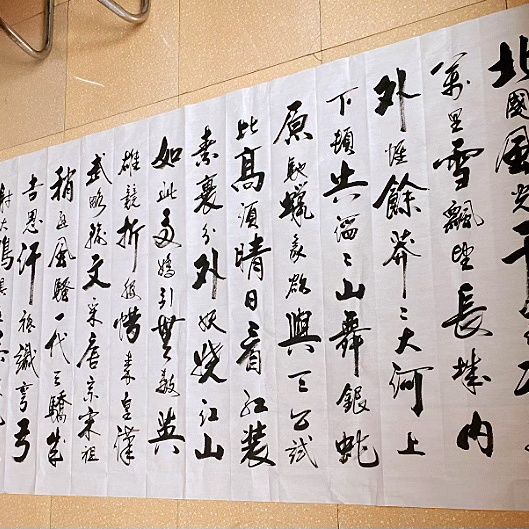 北國風光千
萬里雪飄望長城内
外惟餘莽〻大河上
下頓失滔〻山舞銀蛇
原馳蠟象欲與天公試
比高須晴日看紅装
素裹分外妖嬈江山
如此多嬌引無數英
雄競折腰惜秦皇漢
武略輸文采唐宗宋祖
稍遜風騷一代天驕成
吉思汗祗識彎弓
射大鵰俱